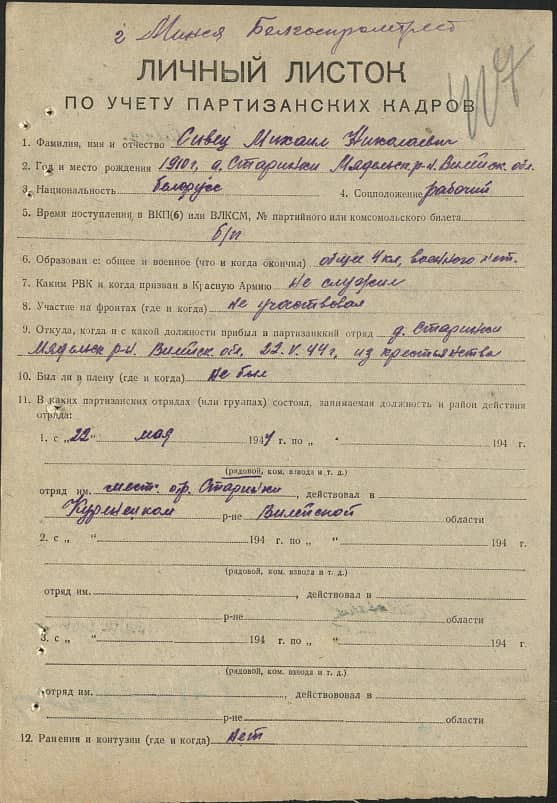 г Минск Белгоспромтрест
ЛИЧНЫЙ ЛИСТОК
ПО УЧЕТУ ПАРТИЗАНСКИХ КАДРОВ
1. Фамилия, имя и отчество Сивец Михаил Николаевич
2. Год и место рождения 1910 г. д. Старинки Мядельск. р-н. Вилейск. обл.
3. Национальность белорусс 4. Соцположение рабочий
5. Время поступления в ВКП(б) или ВЛКСМ, № партийного или комсомольского билета
б/п
6. Образован е: общее и военное (что и когда окончил) общее 4 кл, военного нет.
7. Каким РВК и когда призван в Красную Армию не служил
8. Участие на фронтах (где и когда) не участвовал
9. Откуда, когда и с какой должности прибыл в партизанккий отряд д. Старинки
Мядельск р-н. Вилейск. обл. 22. V. 44 г, из крестьянства
10. Был ли в плену (где и когда) не был
11. В каких партизанских отрядах (или группах) состоял, занимаемая должность и район действия
отряда:
1. с „22" мая 1944 г. по „ " 194 г.
(рядовой, ком. взвода и т. д.)
отряд им. мест. отр. Старинки, действовал в
Куренецком р-не Вилейской области
2. с „ " 194 г. по „ " 194 г.
(рядовой, ком. взвода и т. д.)
отряд им. , действовал в
р-не области
3. с „ " 194 г. по „ " 194 г.
(рядовой, ком. взвода и т. д.)
отряд им. , действововал в
р-не области
12. Ранения и контузии (где и когда) нет